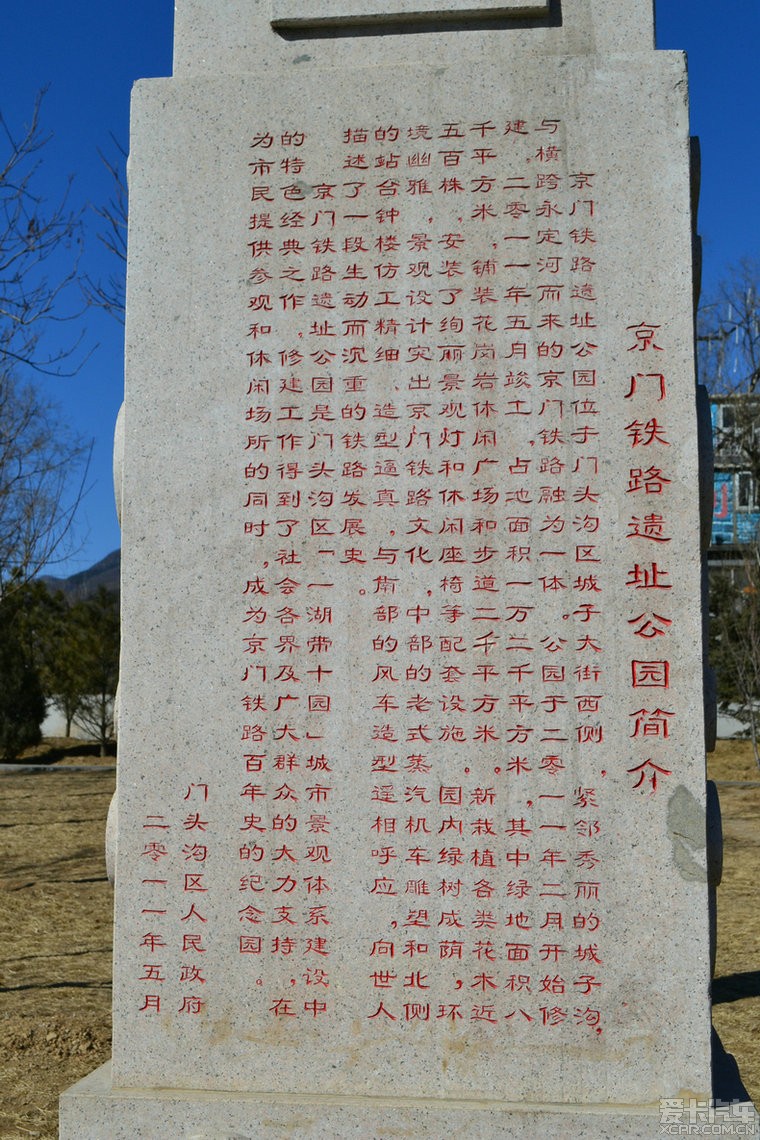 京门铁路遗址公园简介
京门铁路遗址公园位于门头沟区城子大街西侧，紧邻秀丽的城子沟，
与横跨永定河而来的京门铁路融为一体。公园于二零一一年二月开始修
建，二零一一年五月竣工。占地面积一万二千平方米，其中绿地面积八
千平方米，铺装花岗岩休闲广场和步道二千平方米。新栽植各类花木近
五百株，安装了绚丽景观灯和休闲座椅等配套设施。园内绿树成荫，环
境幽雅，景观设计突出京门铁路文化，中部的老式蒸汽机车雕塑和北侧
的站台钟楼仿工精细、造型逼真，与南部的风车造型遥相呼应，向世人
描述了一段生动而沉重的铁路发展史。
京门铁路遗址公园是门头沟区「一湖带十园」城市景观体系建设中
的特色经典之作。修建工作得到了社会各界及广大群众的大力支持，在
为市民提供参观和休闲场所的同时，成为京门铁路百年史的纪念园。
门头沟区人民政府
二零一一年五月
爱卡汽车
XCAR.COM.CN